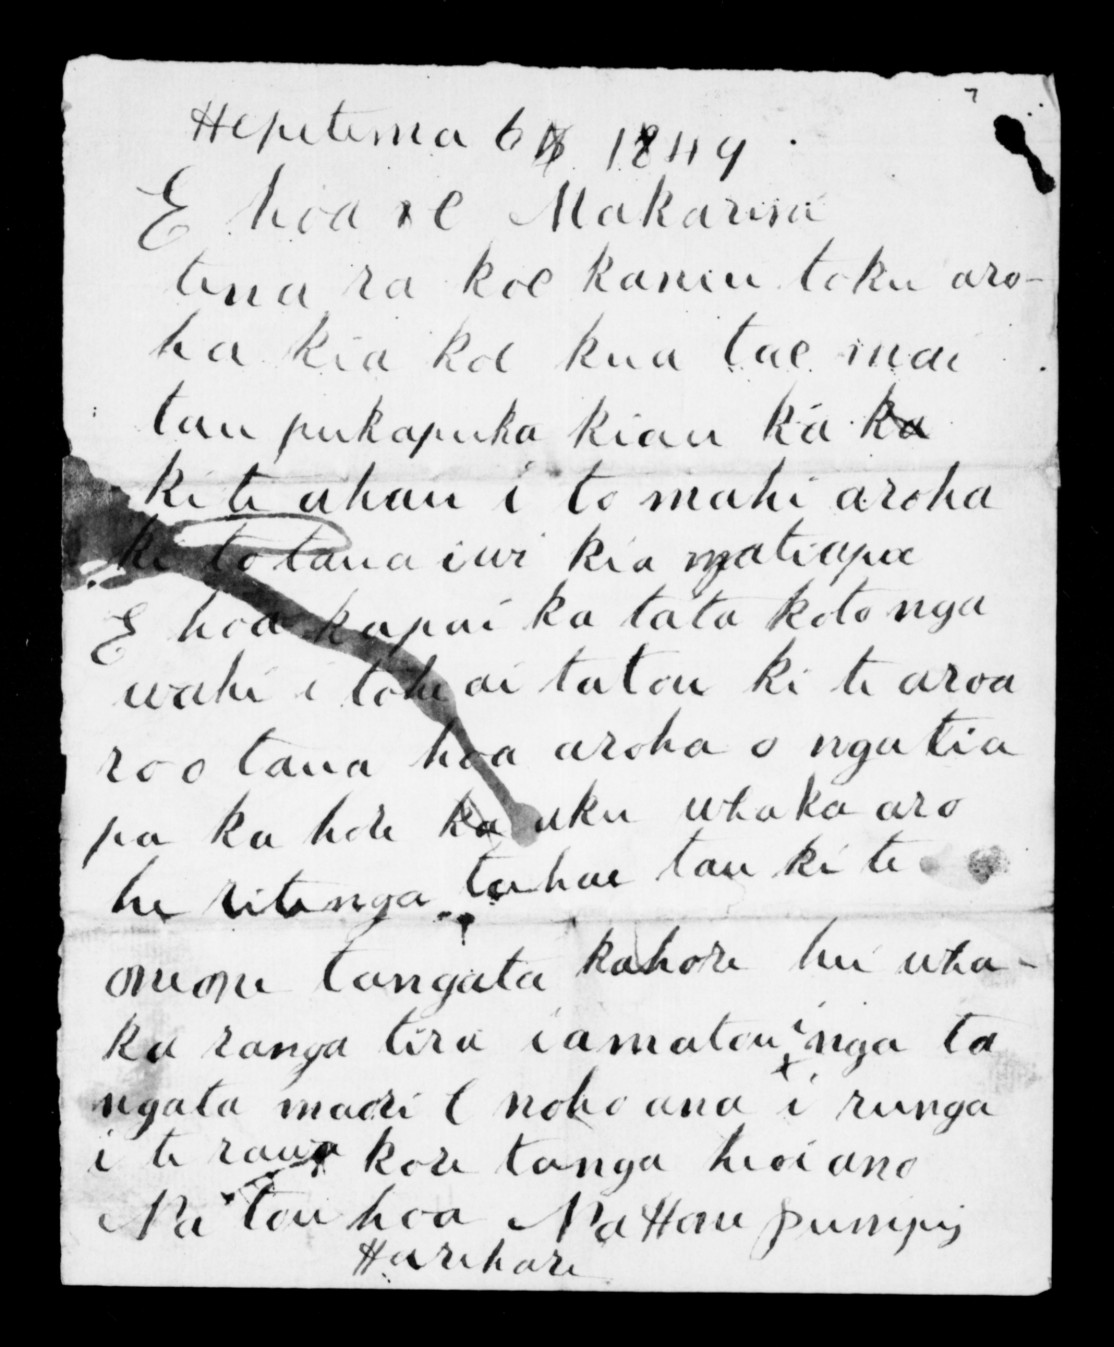 Hepetema 6 1849
E hoa e Makarini
tena ra koe kanui toku aro-
ha kia koe kua tae mai
tau pukapuka kiau ka ka
ki te ahau i to mahi aroha
ki to taua iwi kia matiapu
E hoa kapai ka tata koto nga
wahi i tohe ai tatou ki te aroa
ro o taua hoa aroha o ngatia
pa ka hore ka aku whaka aro
he ritenga ta hae tau ki te
oneone tangata kahore hei wha-
ka ranga tira iamatou i nga ta
ngata maori e noho ana i runga
i te rawa kore tanga heoi ano
Na tou hoa Na Hone
Harihari